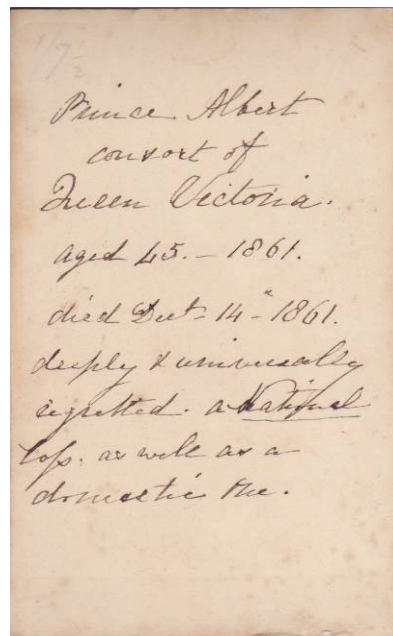 Prince Albert
consort of
Queen Victoria.
aged 45. - 1861.
died Dect - 14" - 1861.
deeply & universally
regretted. a National
loss. as well as a
domestic